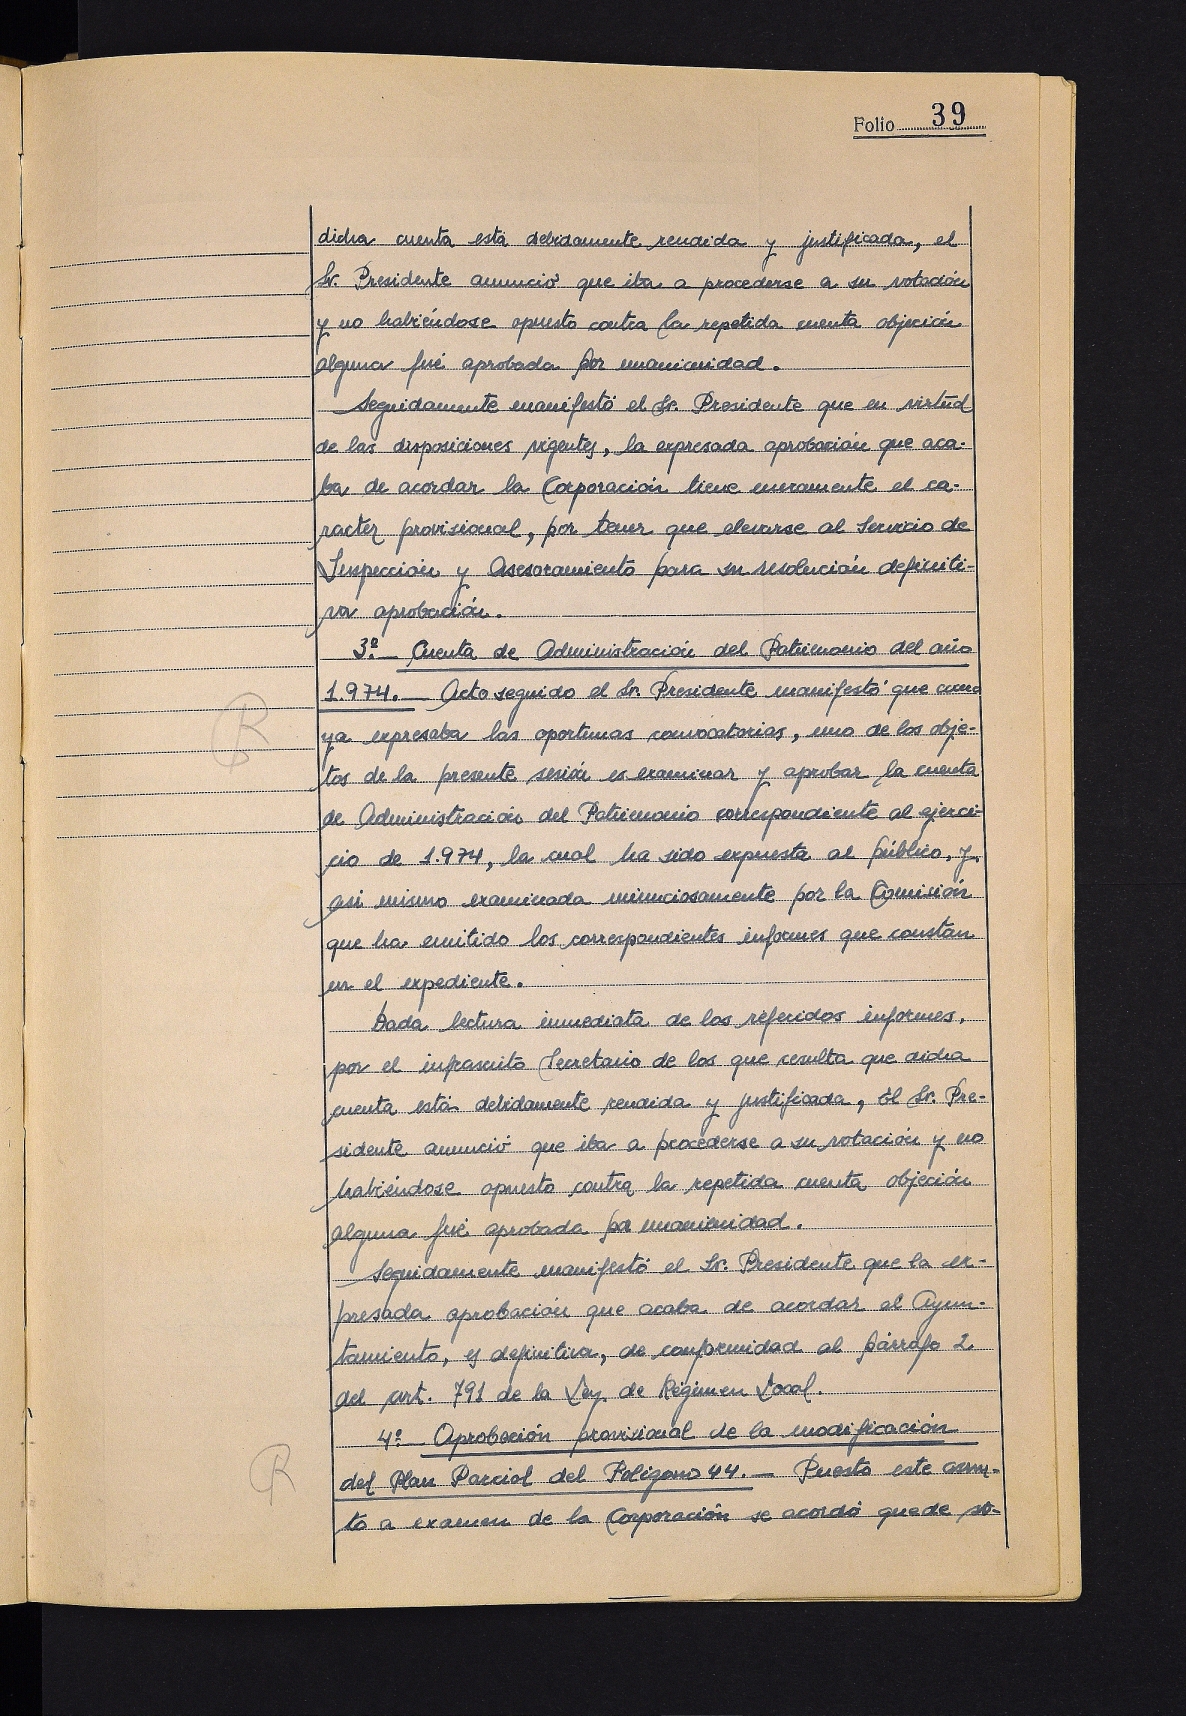 Folio 39
dicha cuenta está debidamente rendida y justificada, el
Sr. Presidente anunció que iba a procederse a su votación
y no habiéndose opuesto contra la repetida cuenta objeción
alguna fué aprobada por unanimidad.
Seguidamente manifestó el Sr. Presidente que en virtud
de las disposiciones vigentes, la expresada aprobación que aca-
ba de acordar la Corporación tiene meramente el ca-
racter provisional, por tener que elevarse al Servicio de
Inspección y Asesoramiento para su resolución definiti-
va aprobación.
3º.— Cuenta de Administración del Patrimonio del año
1.974.— Acto seguido el Sr. Presidente manifestó que como
ya expresaba las oportunas convocatorias, uno de los obje-
tos de la presente sesión es examinar y aprobar la cuenta
de Administración del Patrimonio correspondiente al ejerci-
cio de 1.974, la cual ha sido expuesta al público, y
asi mismo examinada minuciosamente por la Comisión
que ha emitido los correspondientes informes que constan
en el expediente.
Dada lectura inmediata de los referidos informes,
por el infrascrito Secretario de los que resulta que dicha
cuenta está debidamente rendida y justificada, El Sr. Pre-
sidente anunció que iba a procederse a su votación y no
habiéndose opuesto contra la repetida cuenta objeción
alguna fué aprobada por unanimidad.
Seguidamente manifestó el Sr. Presidente que la ex-
presada aprobación que acaba de acordar el Ayun-
tamiento, es definitiva, de conformidad al párrafo 2
del art. 791 de la Ley de Régimen Local.
4º.— Aprobación provisional de la modificación
del Plan Parcial del Polígono 44.— Puesto este asun-
to a examen de la Corporación se acordó quede so-